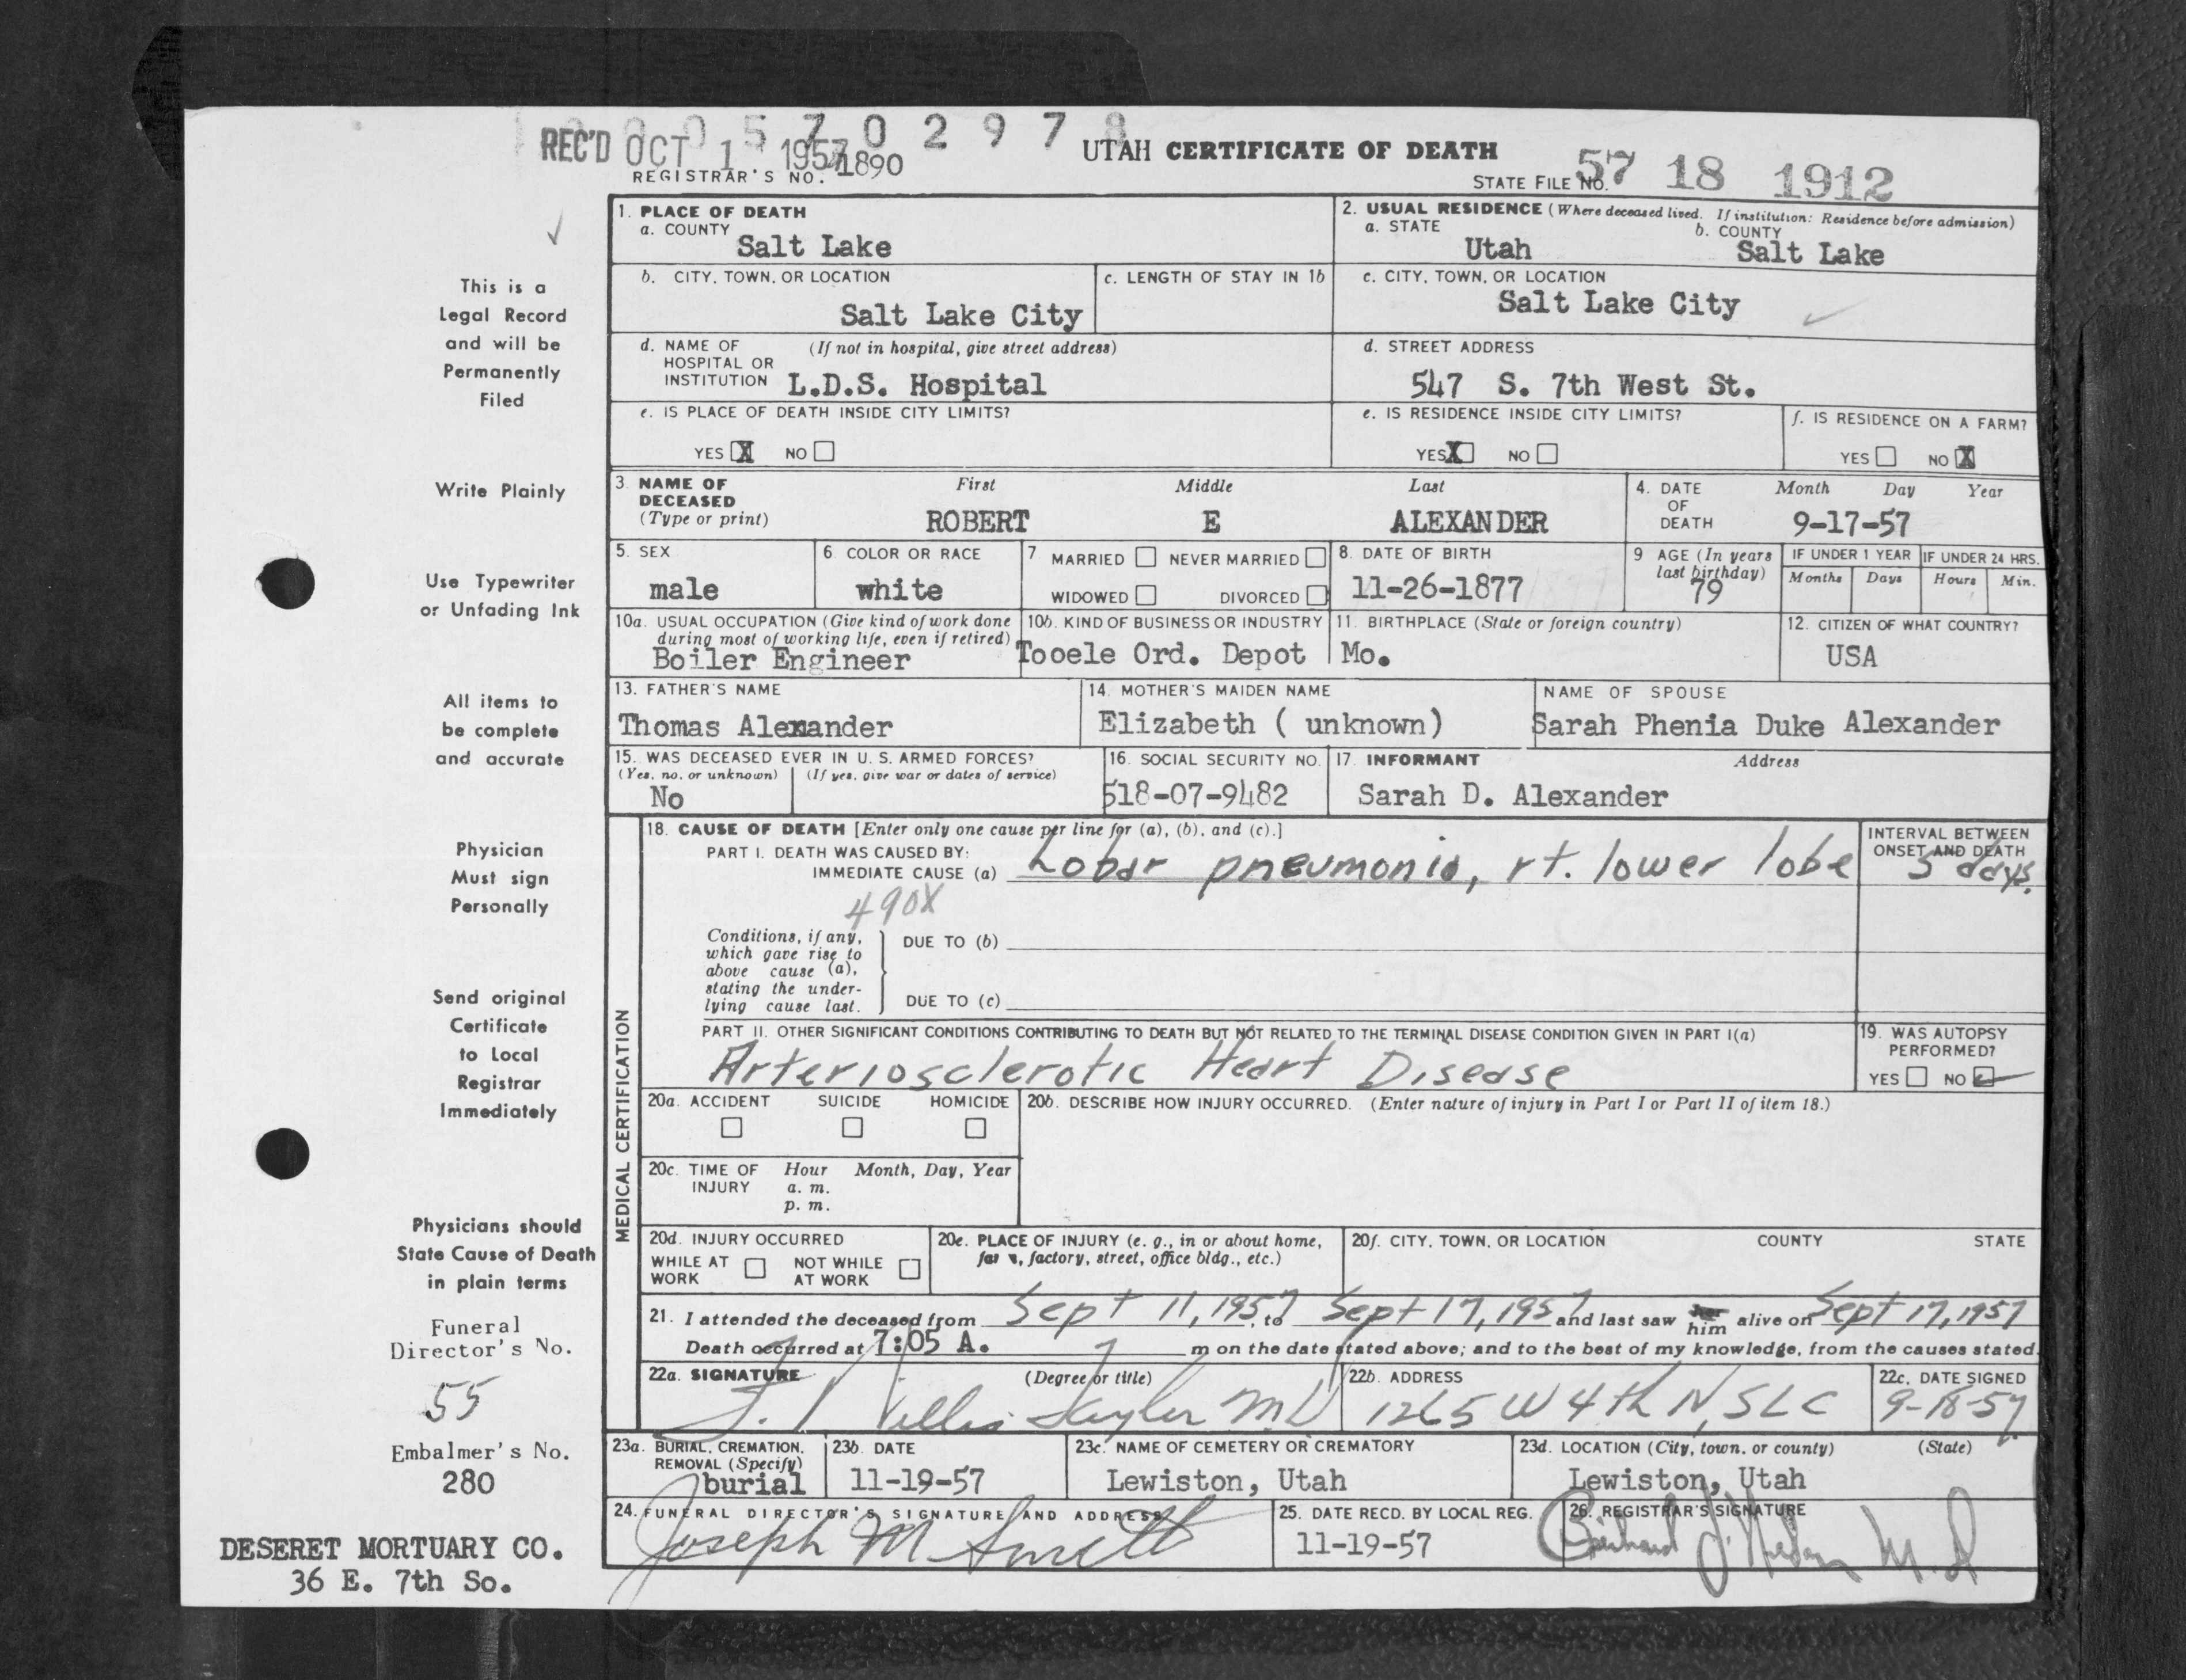 REC'D OCT 1 1957
0 5 7 0 2 9 7 8
REGISTRAR'S NO. 1890
UTAH CERTIFICATE OF DEATH
STATE FILE NO. 57 18 1912
This is a
Legal Record
and will be
Permanently
Filed
Write Plainly
Use Typewriter
or Unfading Ink
All items to
be complete
and accurate
Physician
Must sign
Personally
Send original
Certificate
to Local
Registrar
Immediately
Physicians should
State Cause of Death
in plain terms
Funeral
Director's No.
55
Embalmer's No.
280
DESERET MORTUARY CO.
36 E. 7th So.
1. PLACE OF DEATH
a. COUNTY
Salt Lake
2. USUAL RESIDENCE (Where deceased lived. If institution: Residence before admission)
a. STATE
Utah
b. COUNTY
Salt Lake
b. CITY, TOWN, OR LOCATION
Salt Lake City
c. LENGTH OF STAY IN 1b
c. CITY, TOWN, OR LOCATION
Salt Lake City
d. NAME OF (If not in hospital, give street address)
HOSPITAL OR
INSTITUTION L.D.S. Hospital
d. STREET ADDRESS
547 S. 7th West St.
e. IS PLACE OF DEATH INSIDE CITY LIMITS?
YES X NO
e. IS RESIDENCE INSIDE CITY LIMITS?
YES X NO
f. IS RESIDENCE ON A FARM?
YES NO X
3. NAME OF First Middle Last
DECEASED
(Type or print) ROBERT E ALEXANDER
4. DATE Month Day Year
OF
DEATH 9-17-57
5. SEX
male
6. COLOR OR RACE
white
7 MARRIED NEVER MARRIED
WIDOWED DIVORCED
8. DATE OF BIRTH
11-26-1877
9 AGE (In years
last birthday)
79
IF UNDER 1 YEAR
Months Days
IF UNDER 24 HRS.
Hours Min.
10a. USUAL OCCUPATION (Give kind of work done
during most of working life, even if retired)
Boiler Engineer
10b. KIND OF BUSINESS OR INDUSTRY
Tooele Ord. Depot
11. BIRTHPLACE (State or foreign country)
Mo.
12. CITIZEN OF WHAT COUNTRY?
USA
13. FATHER'S NAME
Thomas Alexander
14. MOTHER'S MAIDEN NAME
Elizabeth ( unknown)
NAME OF SPOUSE
Sarah Phenia Duke Alexander
15. WAS DECEASED EVER IN U. S. ARMED FORCES?
(Yes, no, or unknown) (If yes, give war or dates of service)
No
16. SOCIAL SECURITY NO.
518-07-9482
17. INFORMANT Address
Sarah D. Alexander
MEDICAL CERTIFICATION
18. CAUSE OF DEATH [Enter only one cause per line for (a), (b), and (c).]
PART I. DEATH WAS CAUSED BY:
IMMEDIATE CAUSE (a) Lobar pneumonia, rt. lower lobe
INTERVAL BETWEEN
ONSET AND DEATH
5 days.
490X
Conditions, if any,
which gave rise to
above cause (a),
stating the under-
lying cause last.
DUE TO (b)
DUE TO (c)
PART II. OTHER SIGNIFICANT CONDITIONS CONTRIBUTING TO DEATH BUT NOT RELATED TO THE TERMINAL DISEASE CONDITION GIVEN IN PART I(a)
Arteriosclerotic Heart Disease
19. WAS AUTOPSY
PERFORMED?
YES NO
20a. ACCIDENT SUICIDE HOMICIDE
20b. DESCRIBE HOW INJURY OCCURRED. (Enter nature of injury in Part I or Part II of item 18.)
20c. TIME OF Hour Month, Day, Year
INJURY a. m.
p. m.
20d. INJURY OCCURRED
WHILE AT NOT WHILE
WORK AT WORK
20e. PLACE OF INJURY (e. g., in or about home,
farm, factory, street, office bldg., etc.)
20f. CITY, TOWN, OR LOCATION COUNTY STATE
21. I attended the deceased from Sept 11, 1957, to Sept 17, 1957 and last saw him alive on Sept 17, 1957
Death occurred at 7:05 A. m on the date stated above; and to the best of my knowledge, from the causes stated.
22a. SIGNATURE (Degree or title)
J. Willis Taylor MD
22b. ADDRESS
1265 W 4th N, SLC
22c. DATE SIGNED
9-18-57
23a. BURIAL, CREMATION,
REMOVAL (Specify)
burial
23b. DATE
11-19-57
23c. NAME OF CEMETERY OR CREMATORY
Lewiston, Utah
23d. LOCATION (City, town, or county) (State)
Lewiston, Utah
24. FUNERAL DIRECTOR'S SIGNATURE AND ADDRESS
Joseph M
25. DATE RECD. BY LOCAL REG.
11-19-57
26. REGISTRAR'S SIGNATURE
M.D